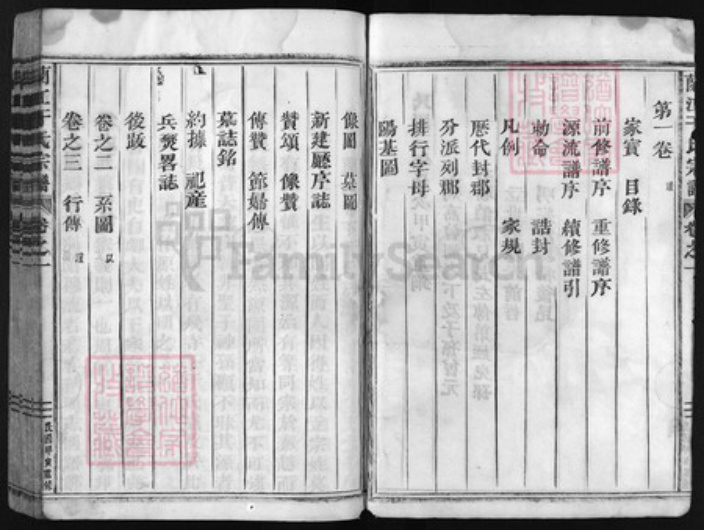 第一卷
家寶 目錄
前修譜序 重修譜序
源流譜序 續修譜引
勅命 誥封
凡例 家規
歷代封郡
分派列郡
排行字母
陽基圖
像圖 墓圖
新建廳序誌
贊頌 像贊
傳贊 節婦傳
墓誌銘
約據 祀產
兵燹畧誌
後跋
卷之二 系圖
卷之三 行傳
氏宗譜
卷之一
FamilySearch